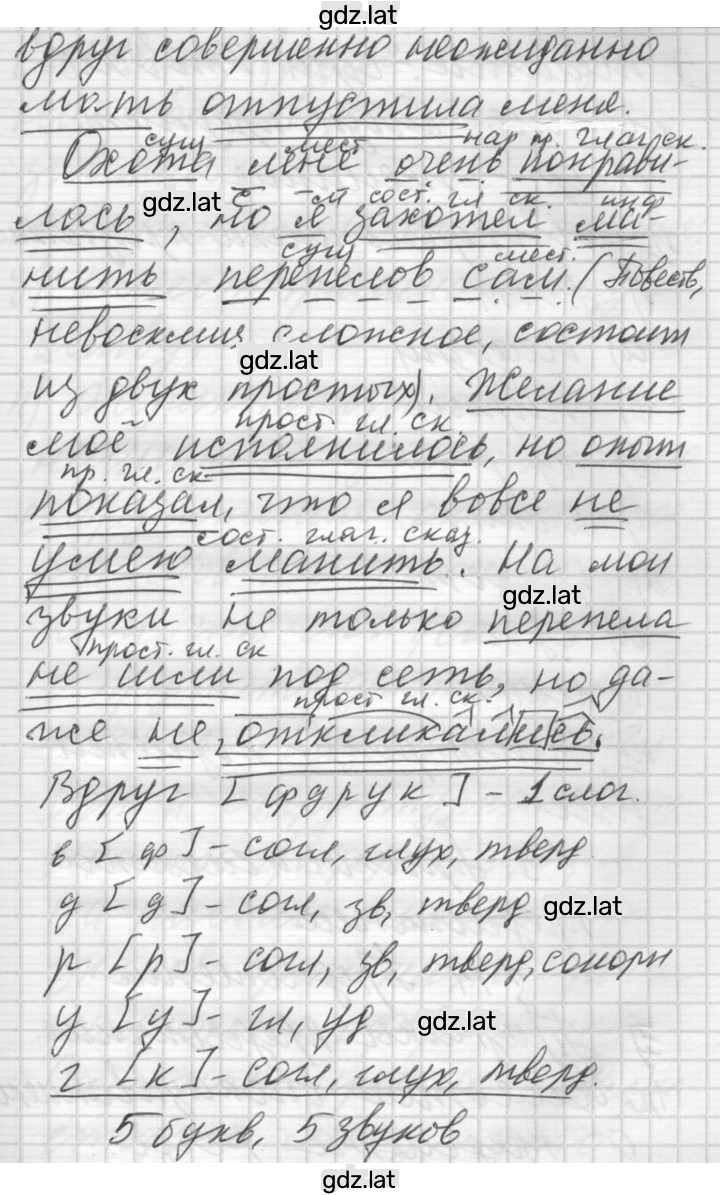 gdz.lat
вдруг совершенно неожиданно
мать отпустила меня.
сущ мест нар пр. глаг. ск.
Охота мне очень понрави-
gdz.lat сост. гл ск. инф
лась, но я захотел ма-
сущ мест.
нить перепелов сам. (Повеств,
невосклиц сложное, состоит
gdz.lat
из двух простых). Желание
прост. гл. ск.
моё исполнилось, но опыт
пр. гл. ск.
показал, что я вовсе не
сост. глаг. сказ.
умею манить. На мои
gdz.lat
звуки не только перепела
прост. гл. ск
не шли под сеть, но да-
прост гл. ск.
же не откликались.
Вдруг [фдрук] - 1 слог.
в [ф] - согл, глух, тверд.
д [д] - согл, зв, тверд gdz.lat
р [р] - согл, зв, тверд, сонорн
у [у] - гл, уд gdz.lat
г [к] - согл, глух, тверд.
5 букв, 5 звуков
gdz.lat